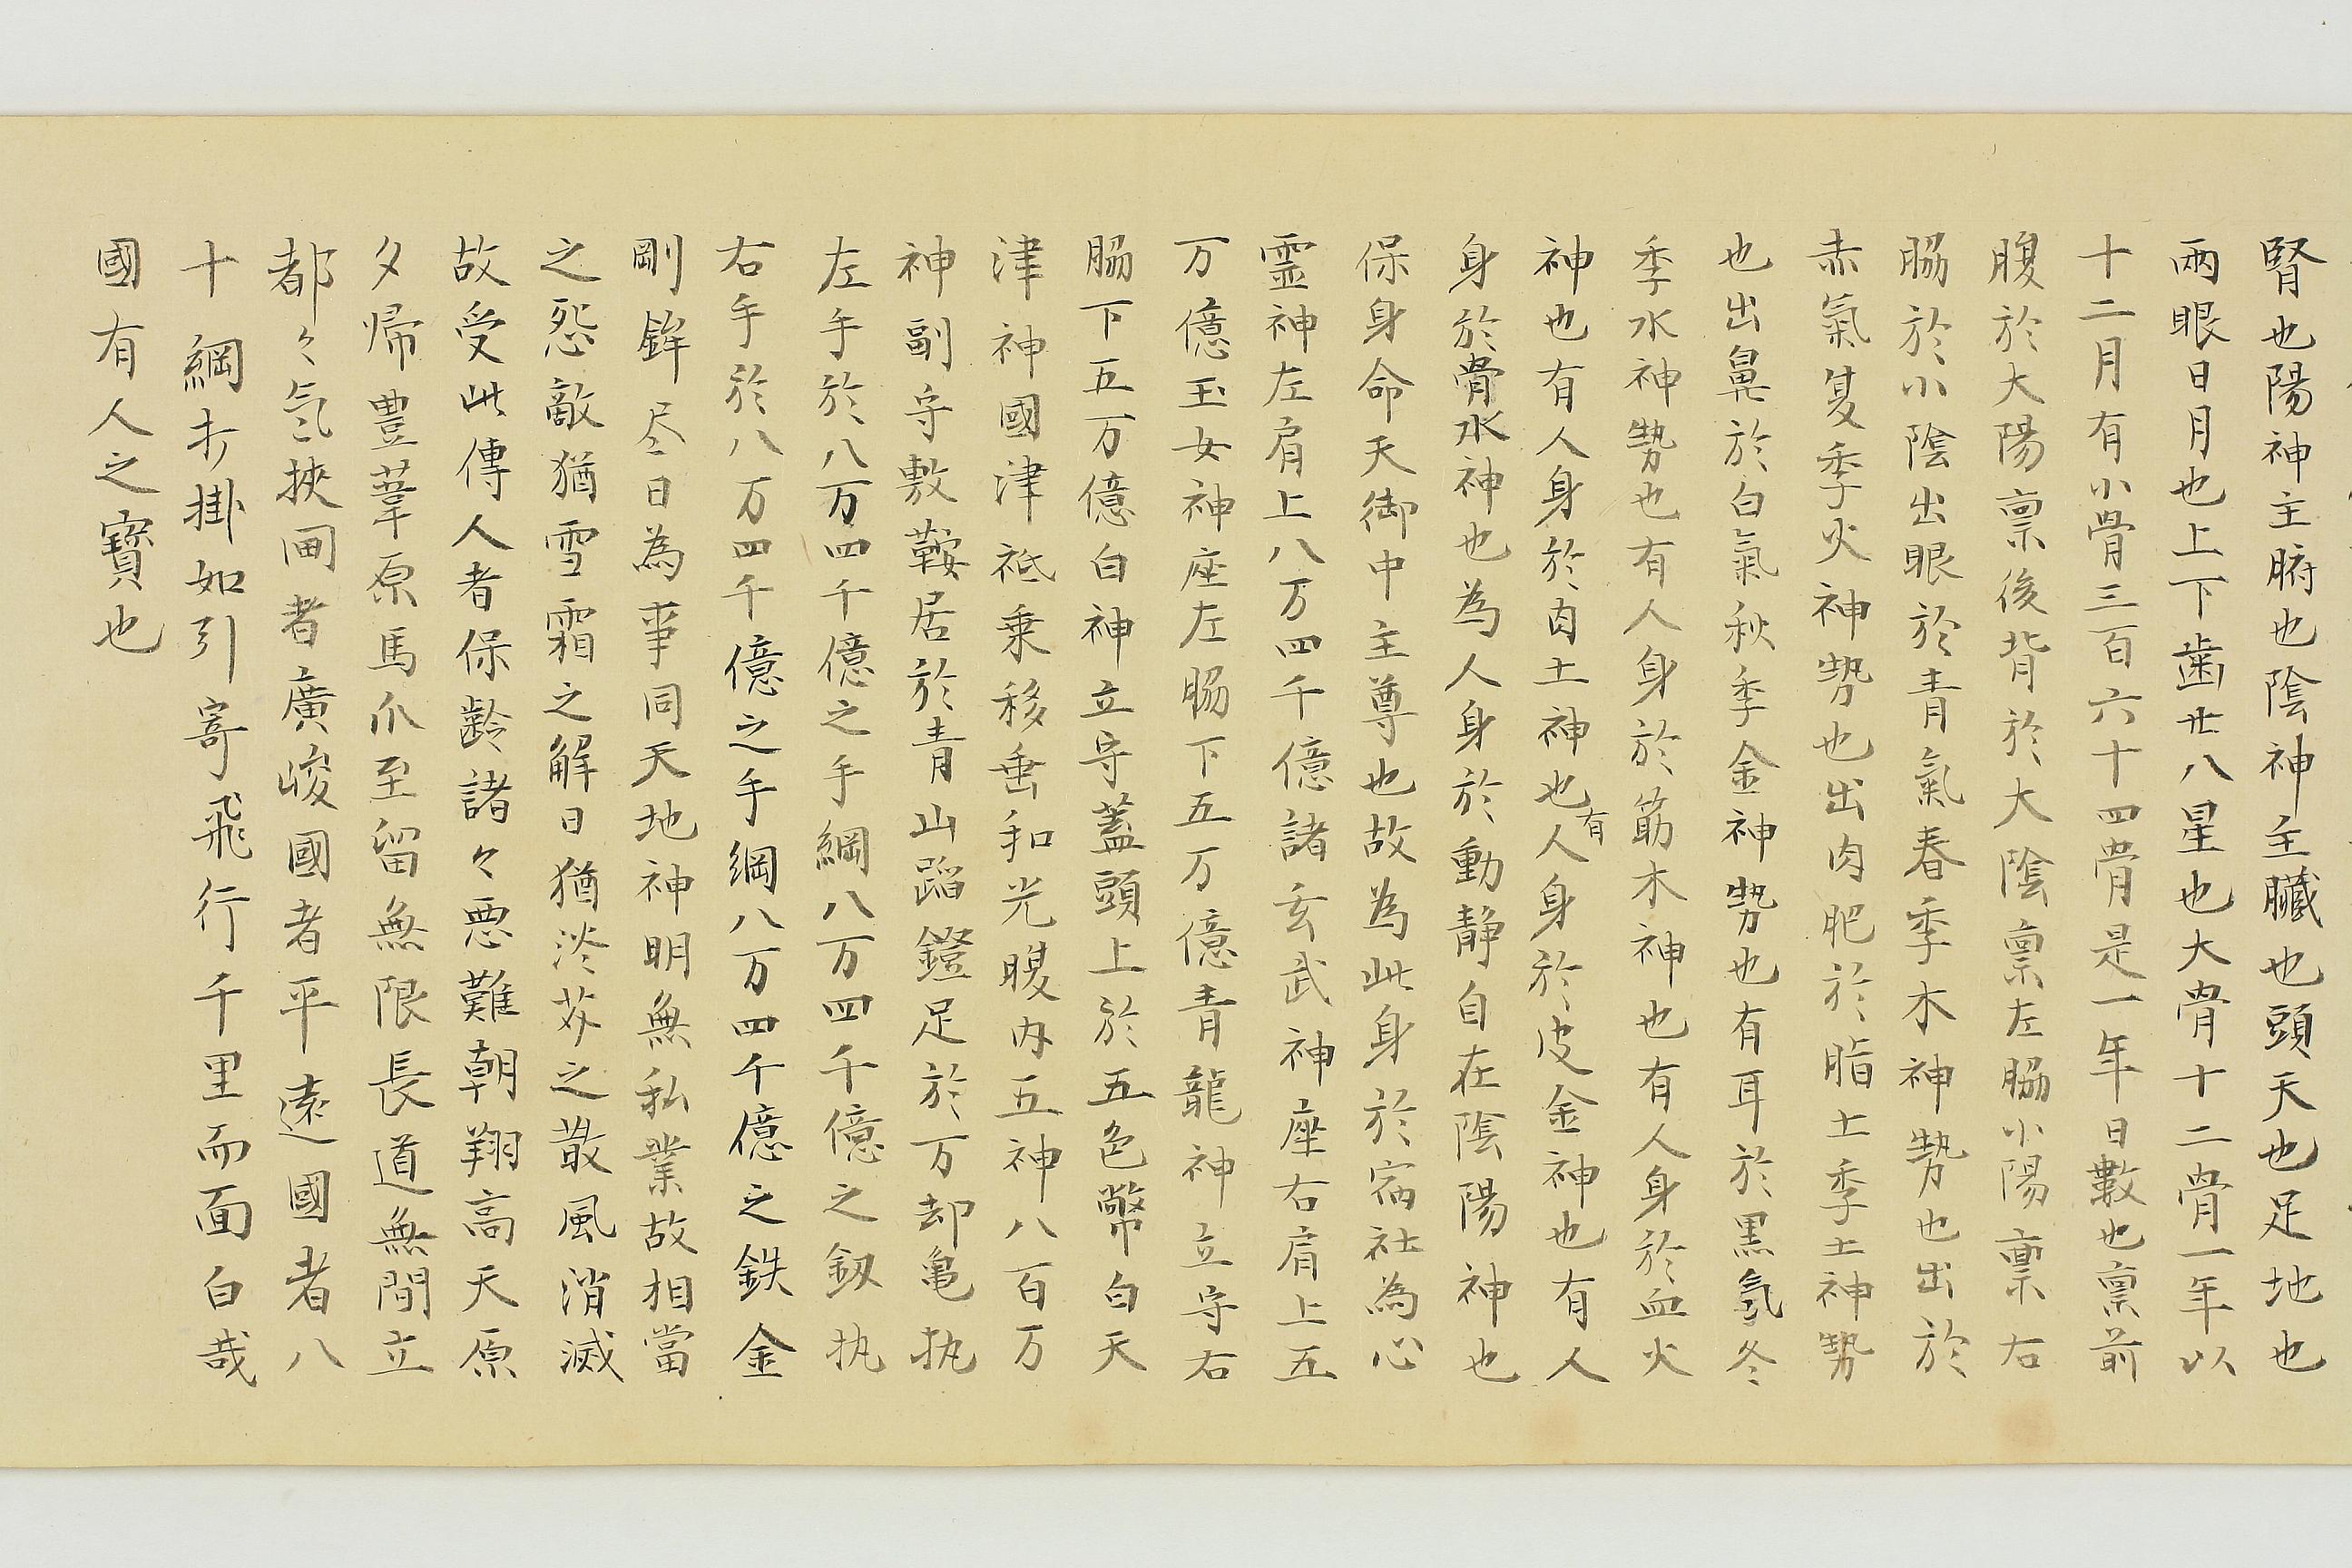 腎也陽神主腑也陰神主臓也頭天也足地也
兩眼日月也上下歯廿八星也大骨十二骨一年以
十二月有小骨三百六十四骨是一年日數也禀前
腹於大陽禀後背於大陰禀左脇小陽禀右
脇於小陰出眼於青氣春季木神勢也出於
赤氣夏季火神勢也出肉肥於脂土季土神勢
也出鼻於白氣秋季金神勢也有耳於黒氣冬
季水神勢也有人身於筋木神也有人身於血火
神也有人身於肉土神也有人身於皮金神也有人
身於骨水神也為人身於動静自在陰陽神也
保身命天御中主尊也故為此身於宿社為心
霊神左肩上八万四千億諸玄武神座右肩上五
万億玉女神座左脇下五万億青龍神立守右
脇下五万億白神立守蓋頭上於五色幣白天
津神國津祗乗移垂和光腹内五神八百万
神副守敷鞍居於青山蹈鐙足於万却亀执
左手於八万四千億之手綱八万四千億之釼执
右手於八万四千億之手綱八万四千億之鉄金
剛鉾尽日為事同天地神明無私業故相當
之怨敵猶雪霜之解日猶淡芥之散風消滅
故受此傳人者保齢諸々悪難朝翔高天原
夕帰豊葦原馬爪至留無限長道無間立
都々氣挾画者廣峻國者平遠國者八
十綱打掛如引寄飛行千里而面白哉
國有人之寶也